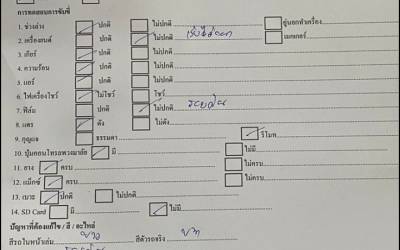 การทดสอบการขับขี่
1. ช่วงล่าง ปกติ ไม่ปกติ คู่นอกทำเครื่อง
2. เครื่องยนต์ ปกติ ไม่ปกติ เมกเกอร์
3. เกียร์ ปกติ ไม่ปกติ
4. ความร้อน ปกติ ไม่ปกติ
5. แอร์ ปกติ ไม่ปกติ
6. ไฟเครื่องโชว์ ไม่โชว์ โชว์
7. ฟิล์ม ปกติ ไม่ปกติ
8. แตร ดัง ไม่ดัง
9. กุญแจ ธรรมดา รีโมท
10. ปุ่มคอนโทรลพวงมาลัย มี ไม่มี
11. ยาง ครบ ไม่ครบ
12. แม็กซ์ ครบ ไม่ครบ
13. เบาะ ปกติ ไม่ปกติ
14. SD Card มี ไม่มี
ปัญหาที่ต้องแก้ไข / สี / อะไหล่
สีรถในหน้าเล่ม ขาว สีตัวรถจริง ขาว